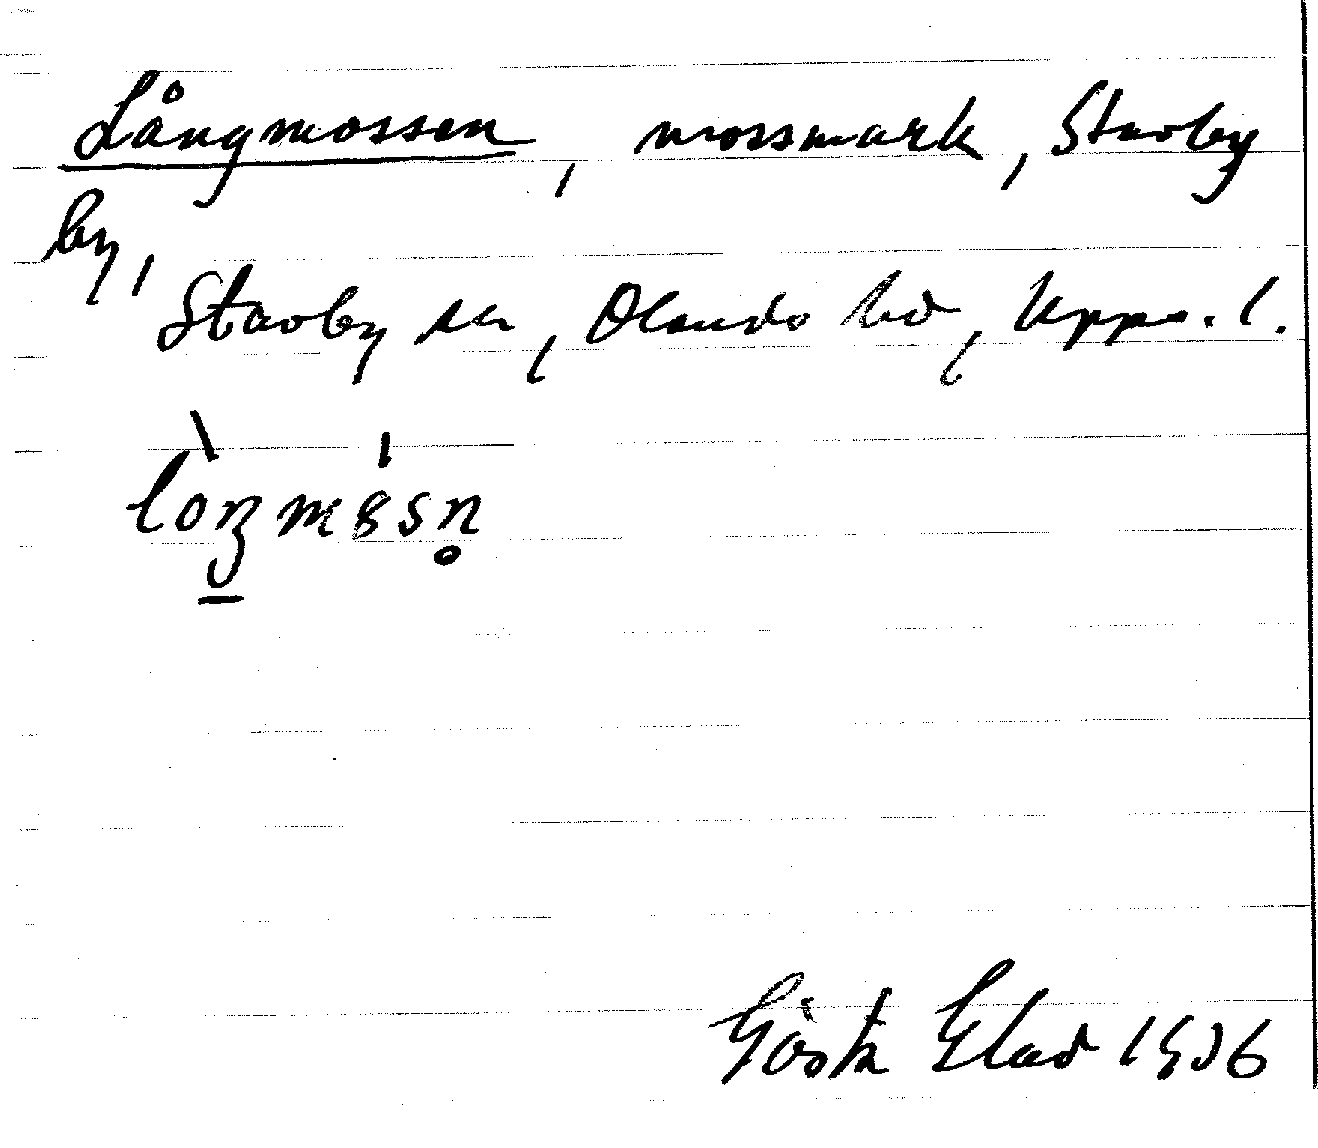 Långmossen, mossmark, Stavby
by,
Stavby sn, Olands hd, Upps. l.
Gösta Glad 1936